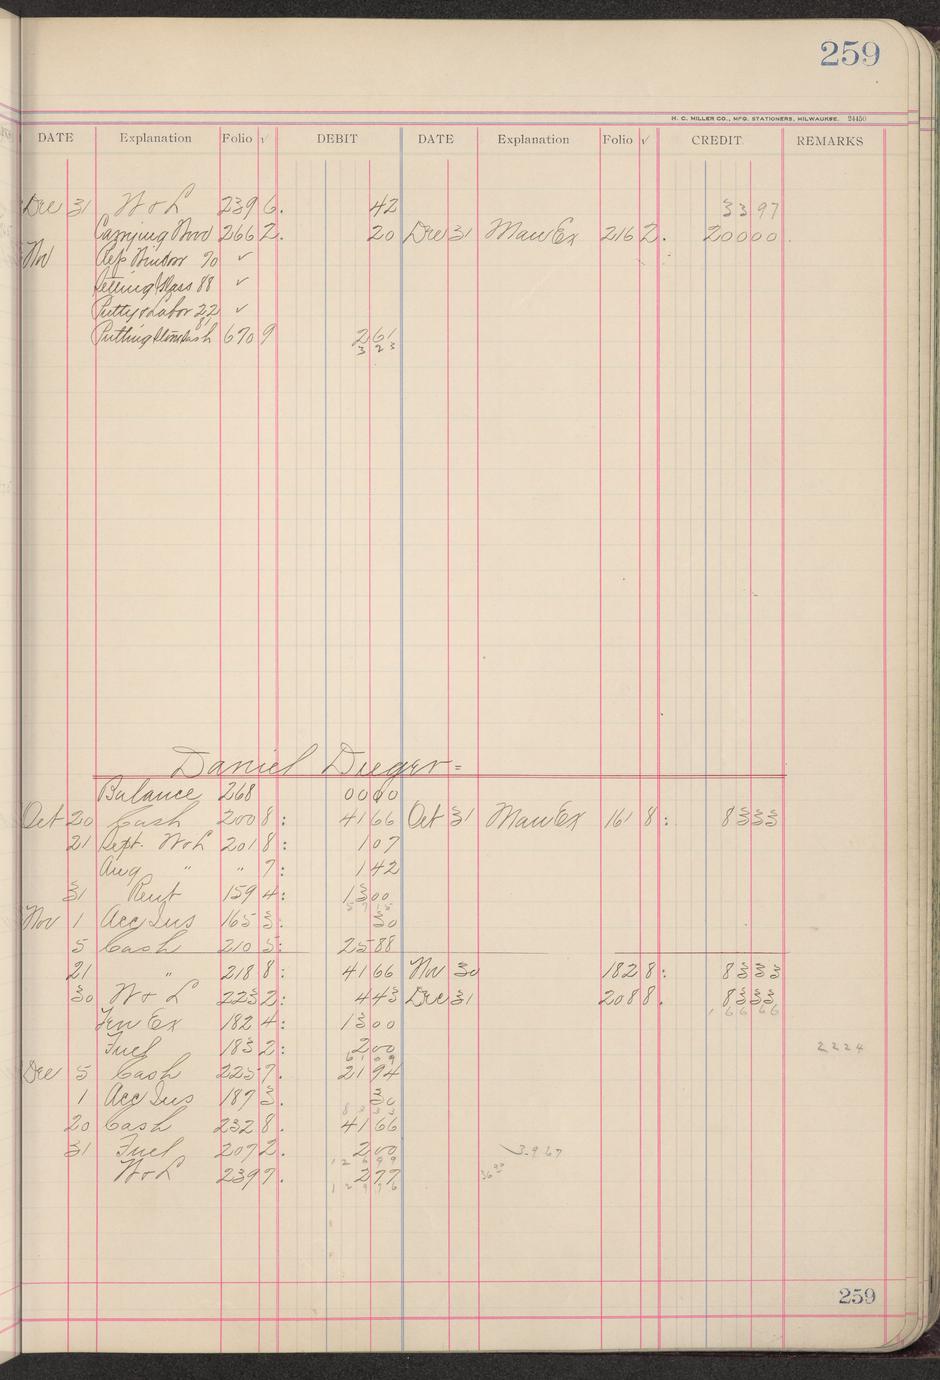 259
H. C. MILLER CO., MFG. STATIONERS, MILWAUKEE. 24450
DATE Explanation Folio √ DEBIT DATE Explanation Folio √ CREDIT REMARKS
Dec 31 W & L 239 6. 42 33 97
Carrying Wood 266 2. 20 Dec 31 Man Ex 216 2. 200 00
Nov Rep Window 70 ✓
Setting Glass 88 ✓
Putty & Labor 22 ✓
Putting Storm Sash 670 9 2 61
3 23
Daniel Dieger =
Balance 268 00 00
Oct 20 Cash 200 8: 41 66 Oct 31 Man Ex 161 8: 83 33
21 Sept. W & L 201 8: 1 07
Aug " " 7: 1 42
31 Rent 159 4: 13 00
Nov 1 Acc Ins 165 3: 30
5 Cash 210 5: 25 88
21 " 218 8: 41 66 Nov 30 182 8: 83 33
30 W & L 223 2: 4 43 Dec 31 208 8. 83 33
166 66
Ten Ex 182 4: 13 00
Fuel 183 2: 2 00
61 09
22 24
Dec 5 Cash 225 7. 21 94
1 Acc Ins 187 3. 30
20 Cash 232 8. 41 66
31 Fuel 207 2. 2 00
126 99
39 67
W & L 239 7. 2 77
129 76
36 93
259